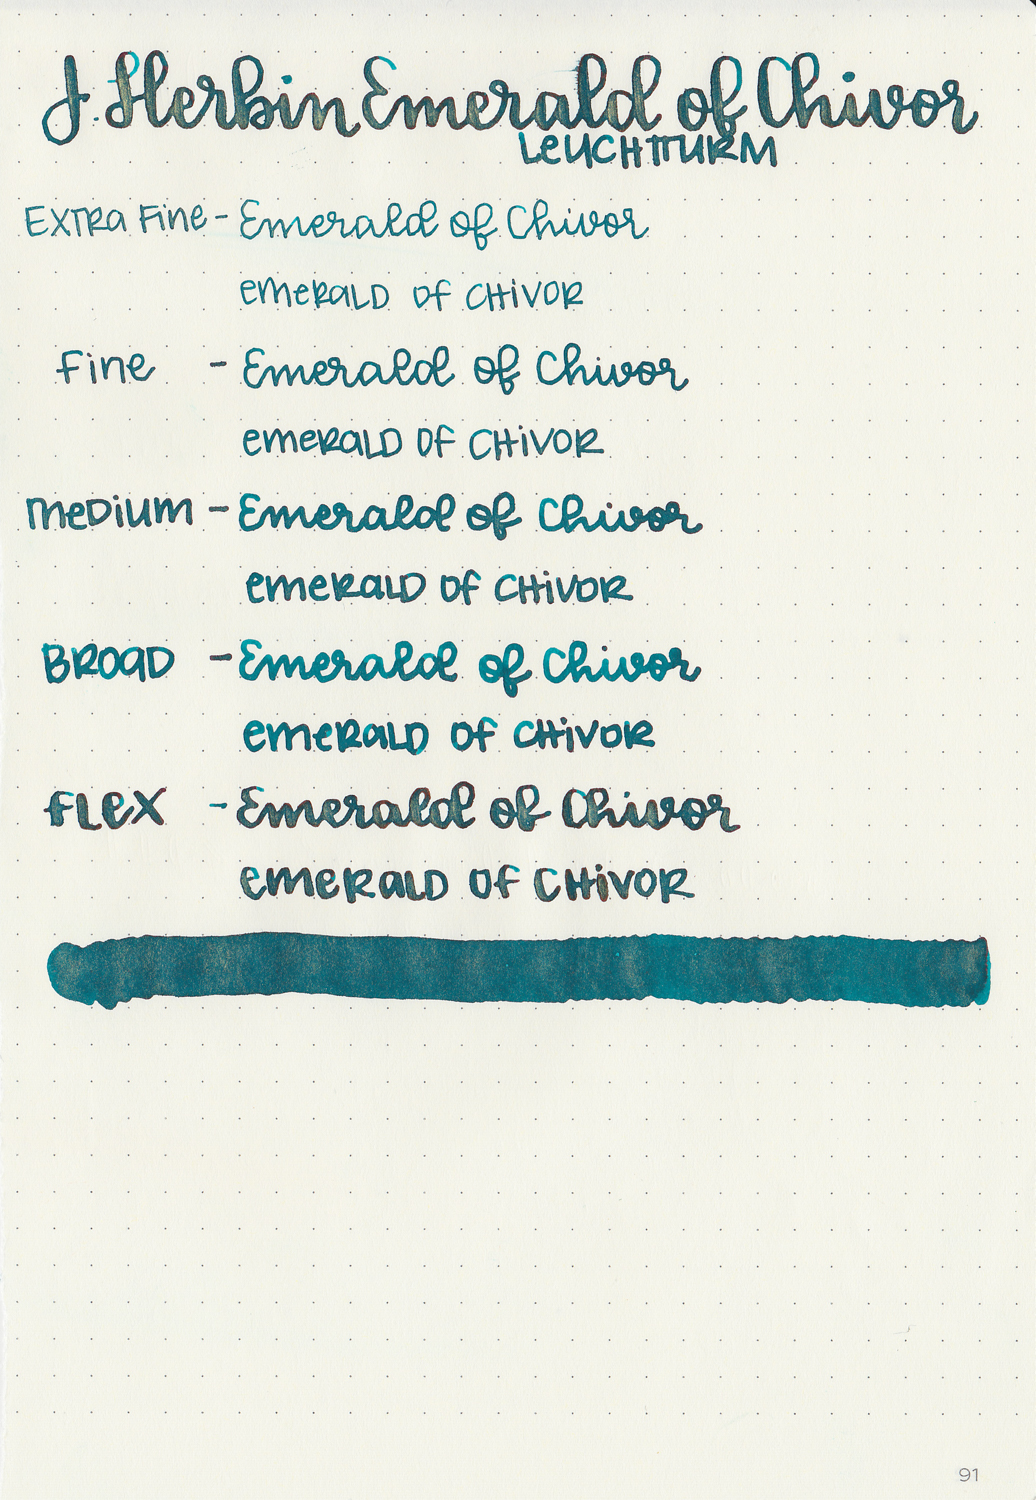 J. Herbin Emerald of Chivor
LEUCHTTURM
EXTRA FINE - Emerald of Chivor
emeRALD OF CHiVOR
fine - Emerald of Chivor
emeRALD OF CHiVOR
meDium - Emerald of Chivor
emeRALD OF CHiVOR
BROAD - Emerald of Chivor
emeRALD OF CHiVOR
FLEX - Emerald of Chivor
emeRALD OF CHiVOR
91